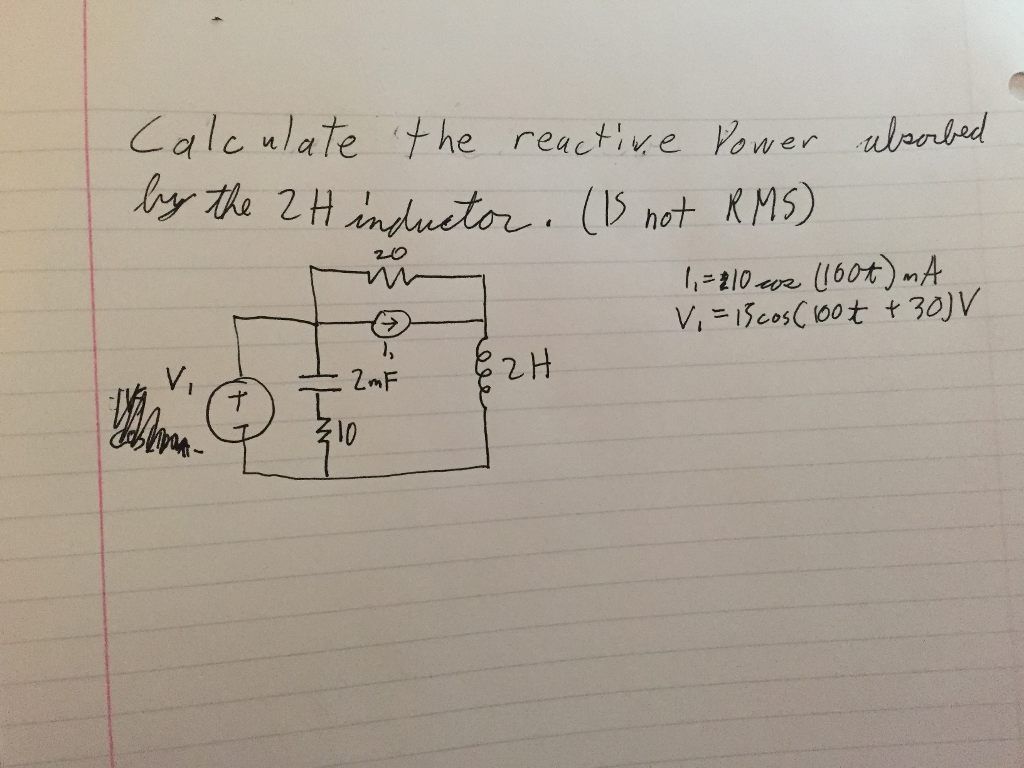 Calculate the reactive Power absorbed
by the 2H inductor. (IS not RMS)
20
I₁ = 10 cos (100t) mA
V₁ = 15cos(100t + 30)V
I₁
V₁
+
-
2mF
2H
10